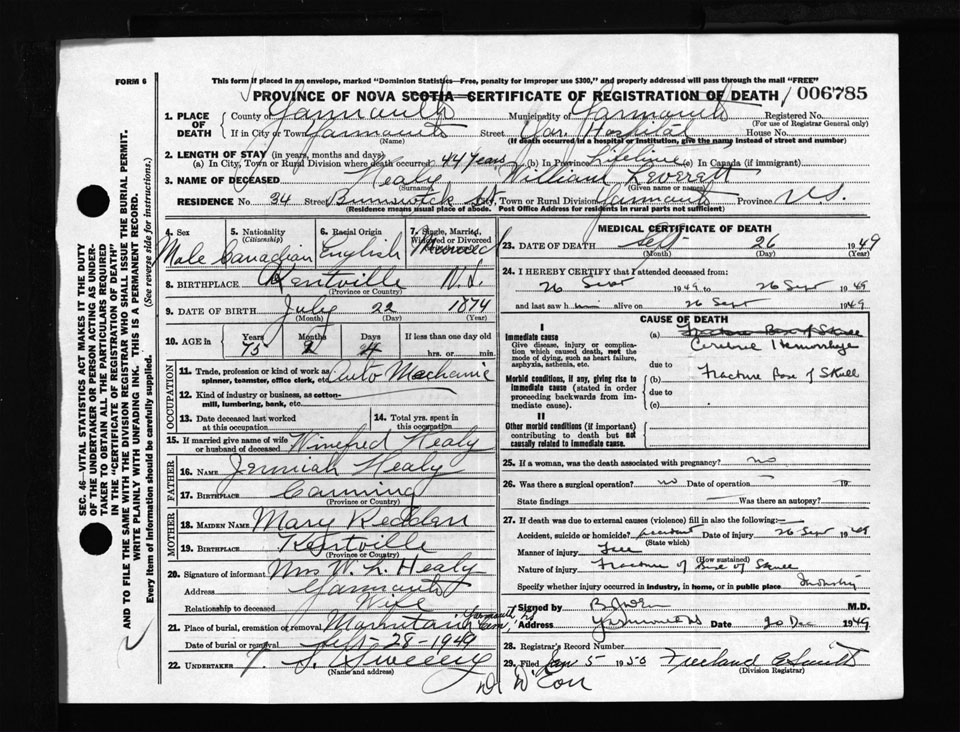 FORM 6
This form if placed in an envelope, marked "Dominion Statistics—Free, penalty for improper use $300," and properly addressed will pass through the mail "FREE"
PROVINCE OF NOVA SCOTIA—CERTIFICATE OF REGISTRATION OF DEATH 006785
1. PLACE OF DEATH
County of Yarmouth Municipality of Yarmouth Registered No.
(For use of Registrar General only)
If in City or Town Yarmouth Street Yar. Hospital House No.
(Name) (If death occurred in a hospital or institution, give the name instead of street and number)
2. LENGTH OF STAY (in years, months and days)
(a) In City, Town or Rural Division where death occurred 44 years (b) In Province Lifetime (c) In Canada (if immigrant)
3. NAME OF DECEASED Healy William Leverett
(Surname) (Given name or names)
RESIDENCE No. 34 Street Brunswick St. City, Town or Rural Division Yarmouth Province N.S.
(Residence means usual place of abode. Post Office Address for residents in rural parts not sufficient)
4. Sex 5. Nationality (Citizenship) 6. Racial Origin 7. Single, Married, Widowed or Divorced
Male Canadian English Married
8. BIRTHPLACE Kentville N.S.
(Province or Country)
9. DATE OF BIRTH July 22 1874
(Month) (Day) (Year)
10. AGE in Years Months Days If less than one day old
75 2 4 hrs. or min.
OCCUPATION
11. Trade, profession or kind of work as spinner, teamster, office clerk, etc. Auto Machanic
12. Kind of industry or business, as cotton-mill, lumbering, bank, etc.
13. Date deceased last worked at this occupation
14. Total yrs. spent in this occupation
15. If married give name of wife or husband of deceased Winefred Healy
FATHER
16. NAME Jermiah Healy
17. BIRTHPLACE Canning
(Province or Country)
MOTHER
18. MAIDEN NAME Mary Redden
19. BIRTHPLACE Kentville
(Province or Country)
20. Signature of informant Mrs W. L. Healy
Address Yarmouth
Relationship to deceased Wife
21. Place of burial, cremation or removal Mountain Cem., Yarmouth
Date of burial or removal Sept-28-1949
22. UNDERTAKER V. S. Sweeny
(Name and address)
MEDICAL CERTIFICATE OF DEATH
23. DATE OF DEATH Sept 26 1949
(Month) (Day) (Year)
24. I HEREBY CERTIFY that I attended deceased from:
26 Sept 1949 to 26 Sept 1949
and last saw him alive on 26 Sept 1949
CAUSE OF DEATH
I
Immediate cause
Give disease, injury or complication which caused death, not the mode of dying, such as heart failure, asphyxia, asthenia, etc.
(a) Fracture Base of Skull
Cerebral Hemorrhage
due to
Morbid conditions, if any, giving rise to immediate cause (stated in order proceeding backwards from immediate cause).
(b) Fracture Base of Skull
due to
(c)
II
Other morbid conditions (if important) contributing to death but not causally related to immediate cause.
25. If a woman, was the death associated with pregnancy? no
26. Was there a surgical operation? no Date of operation 19
State findings Was there an autopsy?
27. If death was due to external causes (violence) fill in also the following:—
Accident, suicide or homicide? Accident Date of injury 26 Sept 1949
(State which)
Manner of injury Fall
(How sustained)
Nature of injury Fracture of Base of Skull
Specify whether injury occurred in industry, in home, or in public place Industry
Signed by M.D.
Address Yarmouth NS Date 20 Dec 1949
28. Registrar's Record Number
29. Filed Jan 5 1950 Freeland C Smith
(Division Registrar)
SEC. 46—VITAL STATISTICS ACT MAKES IT THE DUTY OF THE UNDERTAKER OR PERSON ACTING AS UNDERTAKER TO OBTAIN ALL THE PARTICULARS REQUIRED IN THE "CERTIFICATE OF REGISTRATION OF DEATH" AND TO FILE THE SAME WITH THE DIVISION REGISTRAR WHO SHALL ISSUE THE BURIAL PERMIT.
WRITE PLAINLY WITH UNFADING INK. THIS IS A PERMANENT RECORD.
Every item of Information should be carefully supplied. (See reverse side for instructions.)